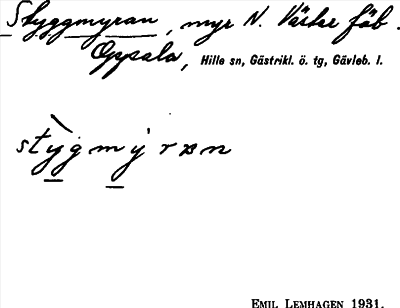 Styggmyran, myr N. Västra fäb.
Oppala, Hille sn, Gästrikl. ö. tg, Gävleb. l.
stỳgmýran
EMIL LEMHAGEN 1931.